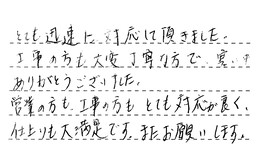 とても迅速に、対応して頂きました。
工事の方も大変丁寧な方で、
ありがとうございました。
営業の方も、工事の方もとても対応が良く、
仕上りも大満足です。またお願いします。